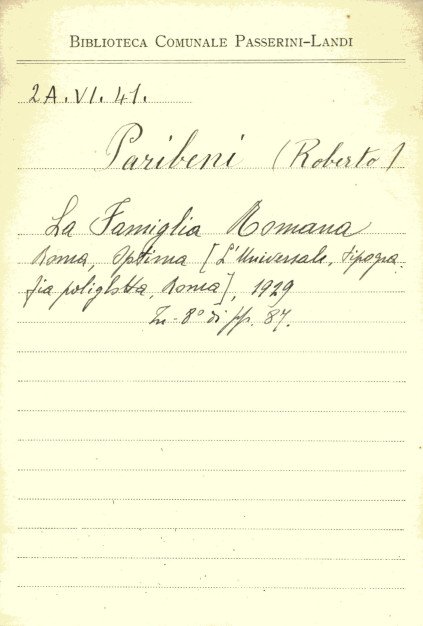 BIBLIOTECA COMUNALE PASSERINI-LANDI
2A.VI.41.
Paribeni (Roberto)
La Famiglia Romana
Roma, Optima [L'Universale, tipogra-
fia poliglotta, Roma], 1929
In-8° di pp. 87.